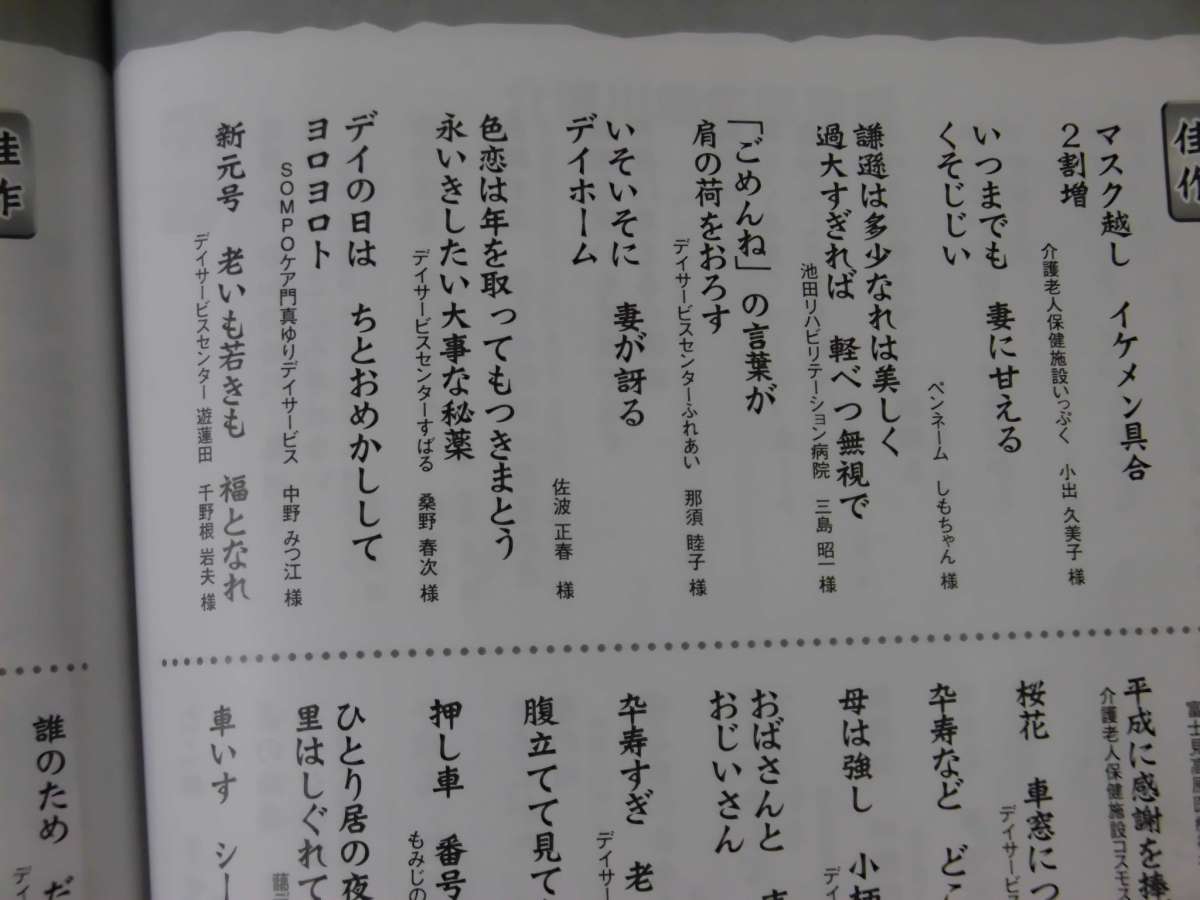 佳作
マスク越し　イケメン具合
2割増
介護老人保健施設いっぷく　小出 久美子 様
いつまでも　妻に甘える
くそじじい
ペンネーム　しもちゃん 様
謙遜は多少なれは美しく
過大すぎれば　軽べつ無視で
池田リハビリテーション病院　三島 昭一 様
「ごめんね」の言葉が
肩の荷をおろす
デイサービスセンターふれあい　那須 睦子 様
いそいそに　妻が訝る
デイホーム
佐波 正春 様
色恋は年を取ってもつきまとう
永いきしたい大事な秘薬
デイサービスセンターすばる　桑野 春次 様
デイの日は　ちとおめかしして
ヨロヨロト
SOMPOケア門真ゆりデイサービス　中野 みつ江 様
新元号　老いも若きも　福となれ
デイサービスセンター 遊蓮田　千野根 岩夫 様
平成に感謝を捧
介護老人保健施設コスモス
桜花　車窓につ
デイサービス
卒寿など　どこ
母は強し　小柄
デイ
おばさんと
おじいさん
卒寿すぎ　老
デイサー
腹立てて見て
押し車　番号
もみじの
ひとり居の夜
里はしぐれて
車いす　シー
佳作
誰のため　だ
デイ